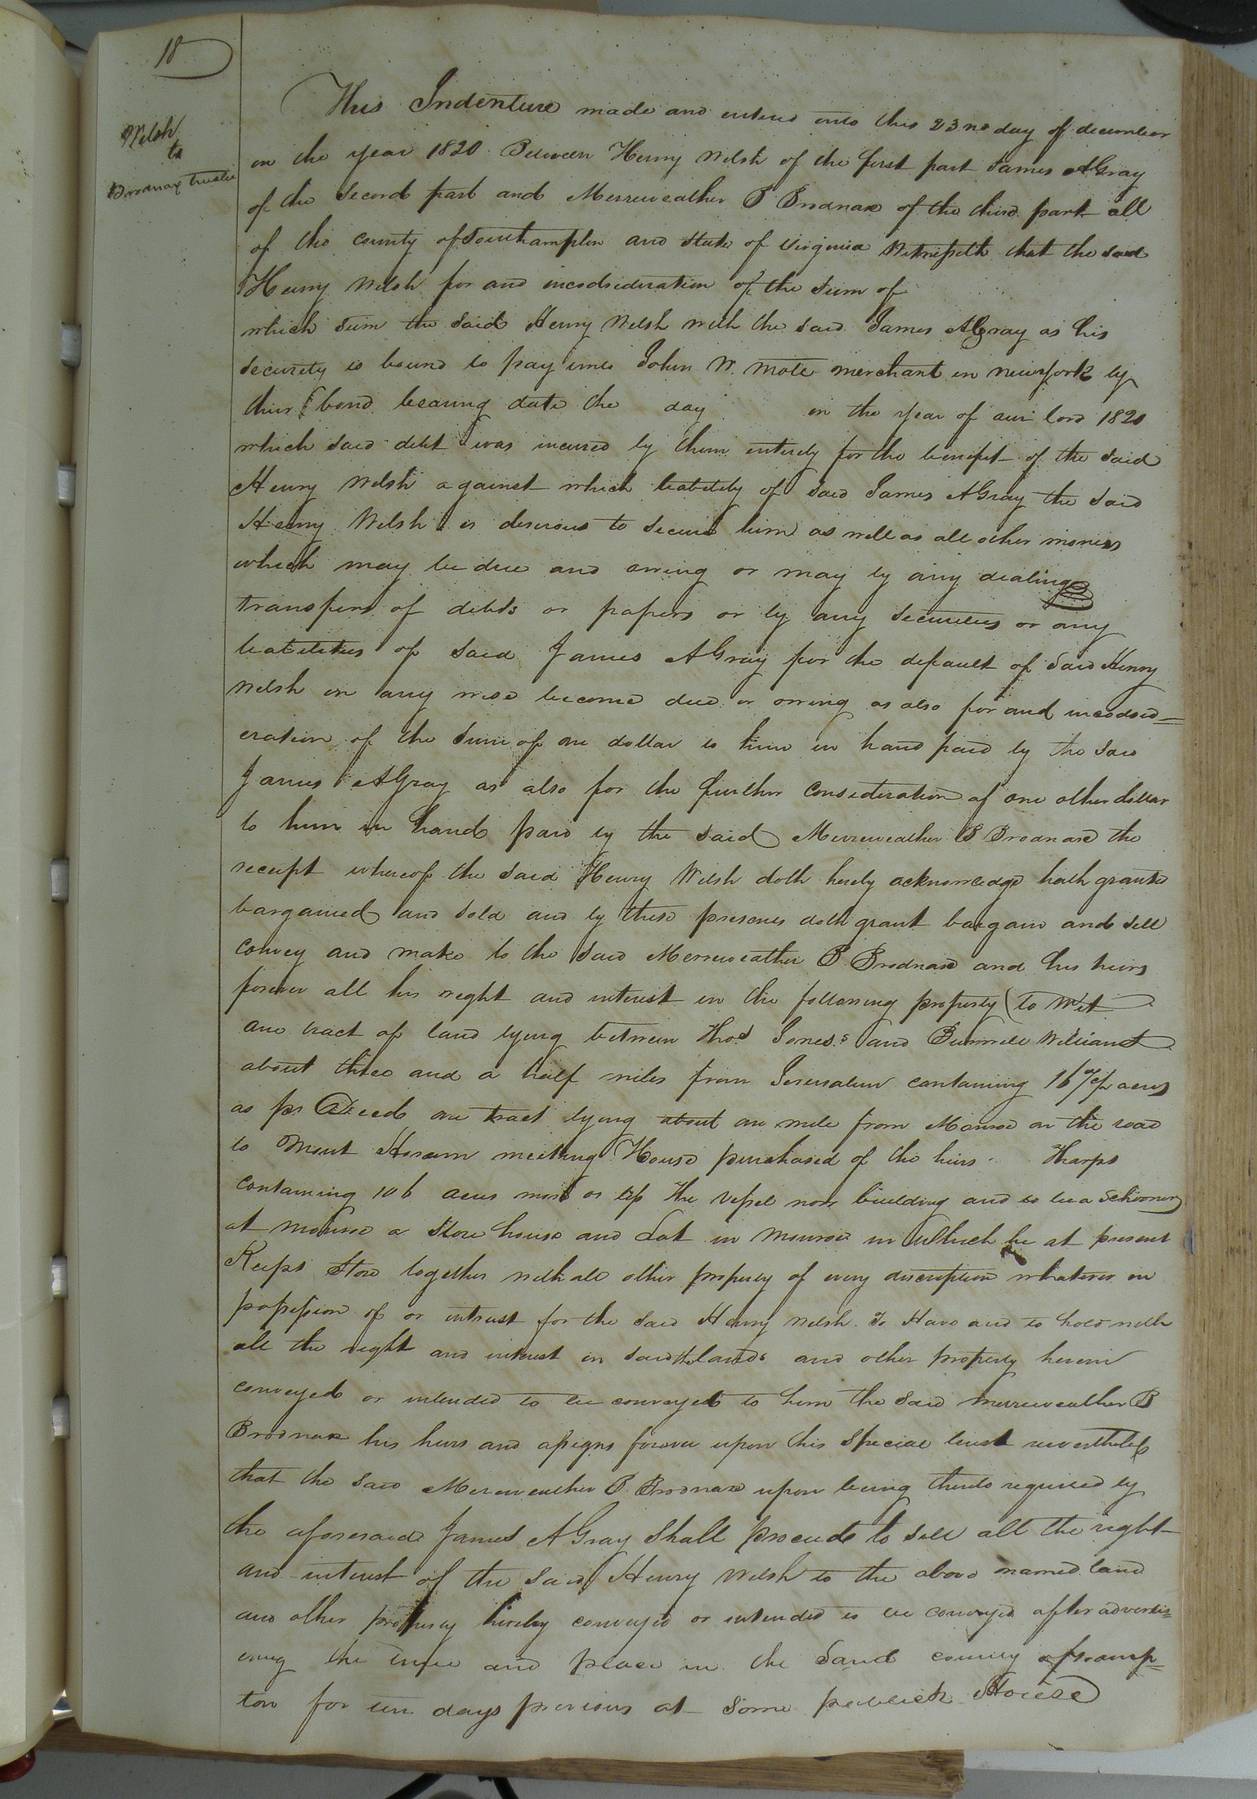 18
Welsh
to
Brodnax trustee
This Indenture made and entered into this 23nd day of december
in the year 1820 Between Henry Welsh of the first part James AGray
of the Second part and Merreweather B Brodnax of the third part all
of the county of Southampton and State of Virginia Witnesseth that the said
Henry Welsh for and inconsideration of the Sum of
which sum the said Henry Welsh with the said James AGray as his
security is bound to pay unto John W. Mott merchant in newyork by
their bond bearing date the day in the year of our lord 1820
which said debt was incured by them entirely for the benefit of the said
Henry Welsh against which liability of said James AGray the said
Henry Welsh is desirous to secure him as well as all other monies
which may be due and owing or may by any dealings
transfers of debts or papers or by any securities or any
liabilities of said James AGray for the default of said Henry
Welsh in any wise become due or owing as also for and inconsid=
eration of the Sum of one dollar to him in hand paid by the said
James AGray as also for the further consideration of one other dollar
to him in hand paid by the said Merreweather B Brodnax the
receipt whereof the said Henry Welsh doth hereby acknowledge hath granted
bargained and sold and by these presents doth grant bargain and sell
convey and make to the said Merreweather B Brodnax and his heirs
forever all his right and interest in the following property (to Wit
one tract of land lying between Thos Jones.s and Burwell Williams
about three and a half miles from Jerusalem containing acres
as pr Deed one tract lying about one mile from Monroe on the road
to Mount Horeum meeting House purchased of the heirs Tharps
containing 106 acres more or less The vessel now building and to be a Schooner
at Monroe a Store house and Lot in Monroe in which he at present
Keeps Store together with all other property of every discription whatever in
possession of or intrust for the said Henry Welsh. To Have and to hold with
all the right and interest in said lands and other property herein
conveyed or intended to be conveyed to him the said Merreweather B
Brodnax his heirs and assigns forever upon this special trust nevertheless
that the said Merreweather B Brodnax upon being thereto required by
the aforesaid James AGray Shall proceede to sell all the right
and interest of the said Henry Welsh to the above named land
and other property hereby conveyed or intended to be conveyed after advertis=
ing the time and place in the Said county of Soamp=
ton for ten days previous at some publick House